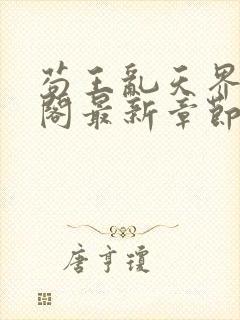 苟王亂天界
閣最新章節
唐亨瓊